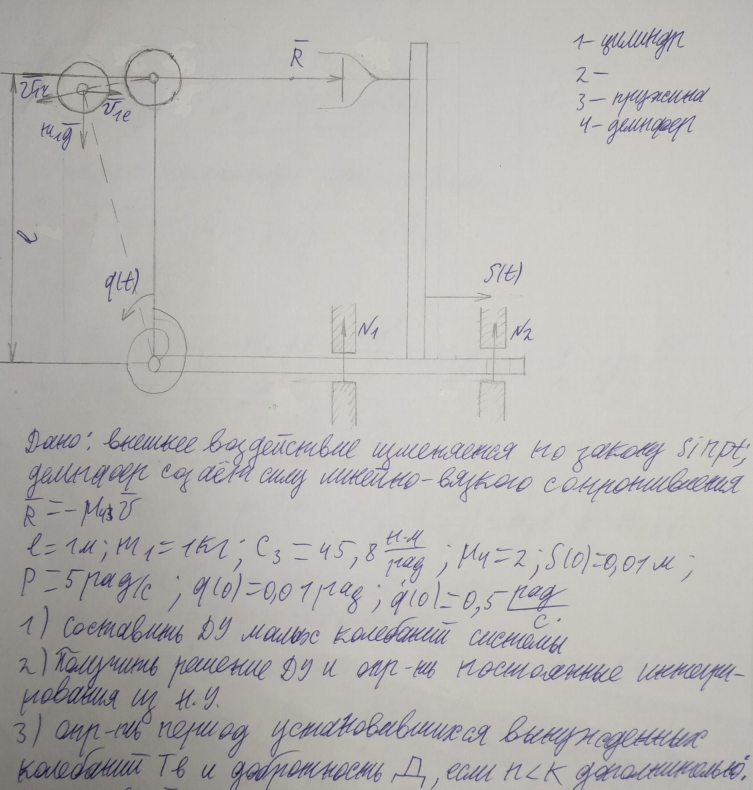 R̄
1- цилиндр
2 -
3 - пружина
4 - демпфер
V̄1r
V̄1e
m1ḡ
l
q(t)
S(t)
N1
N2
Дано: внешнее воздействие изменяется по закону sin pt;
демпфер создаёт силу линейно-вязкого сопротивления
R̄ = -μ4 V̄
l = 1м; m1 = 1кг; C3 = 45,8 н·м/рад; μ4 = 2; S(0) = 0,01м;
P = 5 рад/с; q(0) = 0,01 рад; q̇(0) = 0,5 рад/с.
1) составить ДУ малых колебаний системы
2) Получить решение ДУ и опр-ть постоянные интегри-
рования из н.у.
3) опр-ть период установившихся вынужденных
колебаний Tв и добротность Д, если n<k дополнительно: